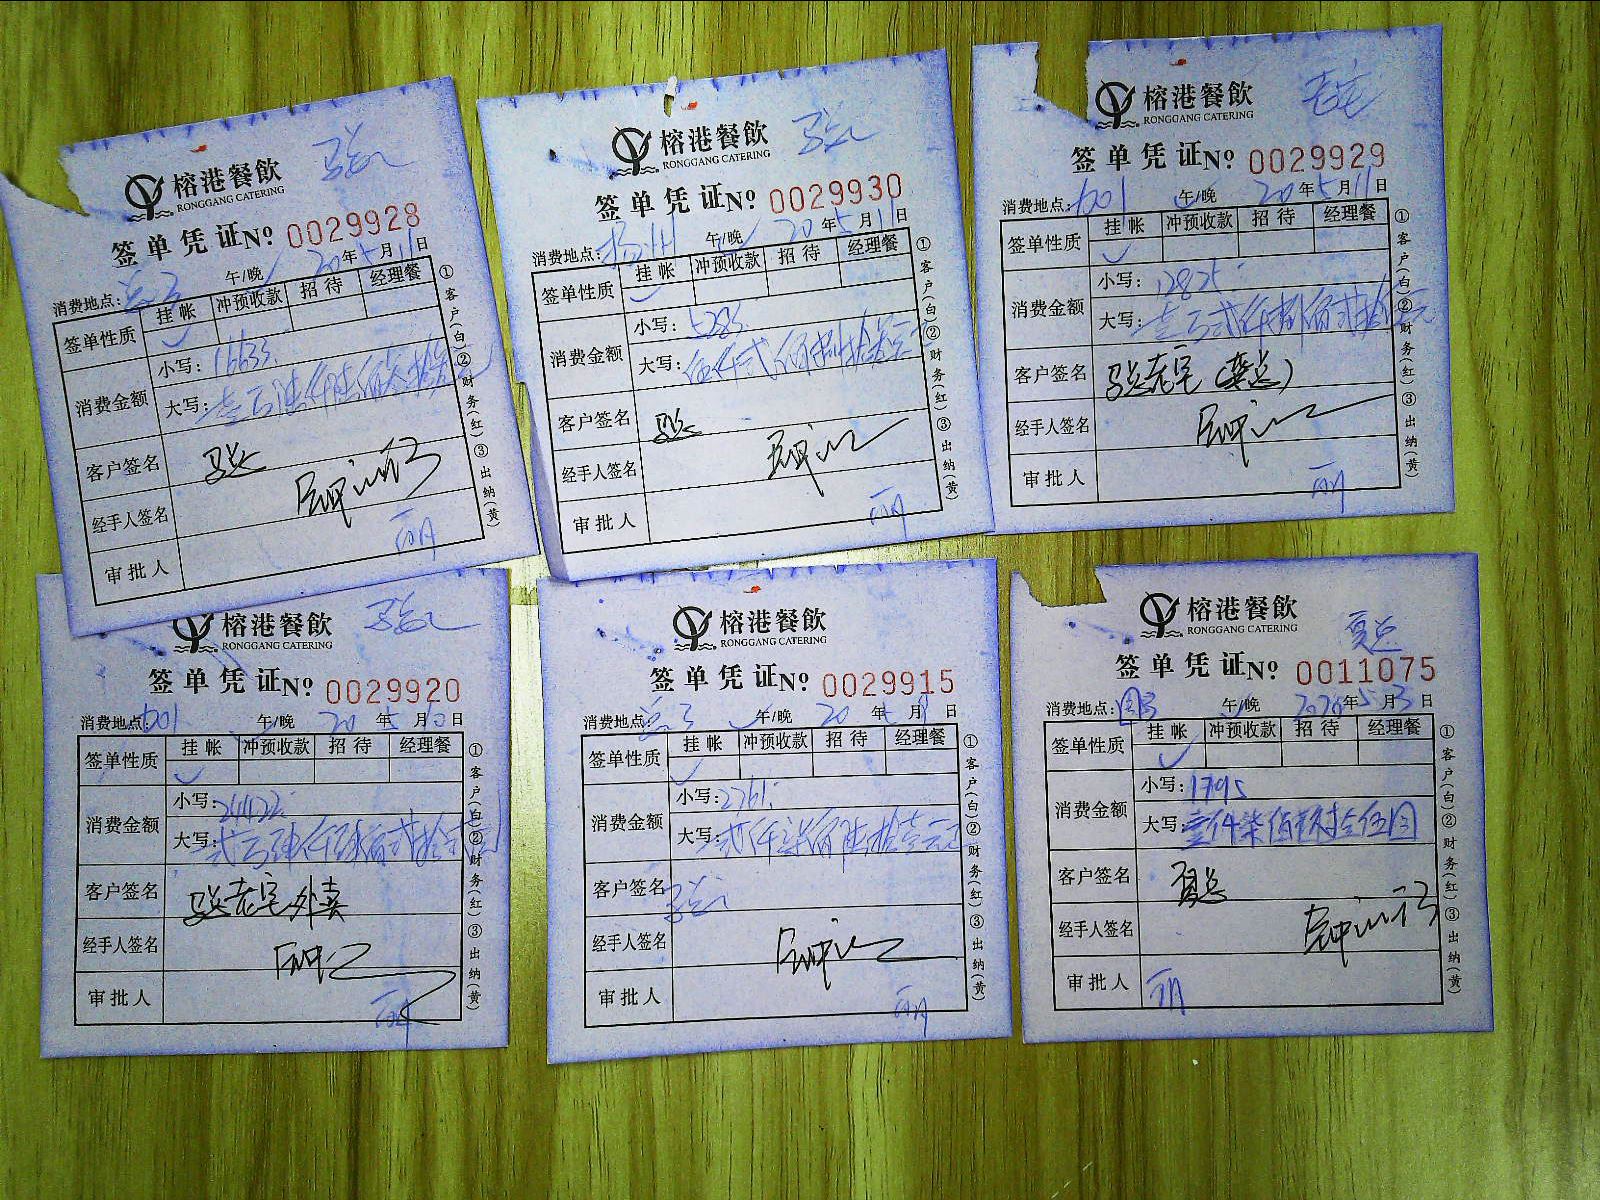 榕港餐飲
RONGGANG CATERING
签单凭证№ 0029928
20年5月11日
消费地点: 午/晚
签单性质 挂帐 冲预收款 招待 经理餐
消费金额 小写: 16635.
大写: 壹万陆仟陆佰叁拾伍元
客户签名 骆总
经手人签名
审批人 丽
①客户(白)②财务(红)③出纳(黄)
榕港餐飲
RONGGANG CATERING
签单凭证№ 0029930
20年5月11日
消费地点:扬州 午/晚
签单性质 挂帐 冲预收款 招待 经理餐
消费金额 小写: 5285.
大写: 伍仟贰佰捌拾伍元
客户签名 骆总
经手人签名
审批人 丽
①客户(白)②财务(红)③出纳(黄)
榕港餐飲 老宅
RONGGANG CATERING
签单凭证№ 0029929
消费地点: 601 午/晚 20年5月11日
签单性质 挂帐 冲预收款 招待 经理餐
消费金额 小写: 12825.
大写: 壹万贰仟捌佰贰拾伍元
客户签名 骆总老宅(龚总)
经手人签名
审批人 丽
①客户(白)②财务(红)③出纳(黄)
榕港餐飲
RONGGANG CATERING
签单凭证№ 0029920
消费地点: 601. 午/晚 20年5月10日
签单性质 挂帐 冲预收款 招待 经理餐
消费金额 小写:
大写:
客户签名 骆总老宅外卖
经手人签名
审批人 丽
①客户(白)②财务(红)③出纳(黄)
榕港餐飲
RONGGANG CATERING
签单凭证№ 0029915
消费地点: 午/晚 20年5月9日
签单性质 挂帐 冲预收款 招待 经理餐
消费金额 小写: 2761.
大写: 贰仟柒佰陆拾壹元正
客户签名 骆总
经手人签名
审批人 丽
①客户(白)②财务(红)③出纳(黄)
榕港餐飲 夏总
RONGGANG CATERING
签单凭证№ 0011075
消费地点: 午/晚 年5月3日
签单性质 挂帐 冲预收款 招待 经理餐
消费金额 小写: 1795
大写: 壹仟柒佰玖拾伍圆
客户签名 夏总
经手人签名
审批人 丽
①客户(白)②财务(红)③出纳(黄)